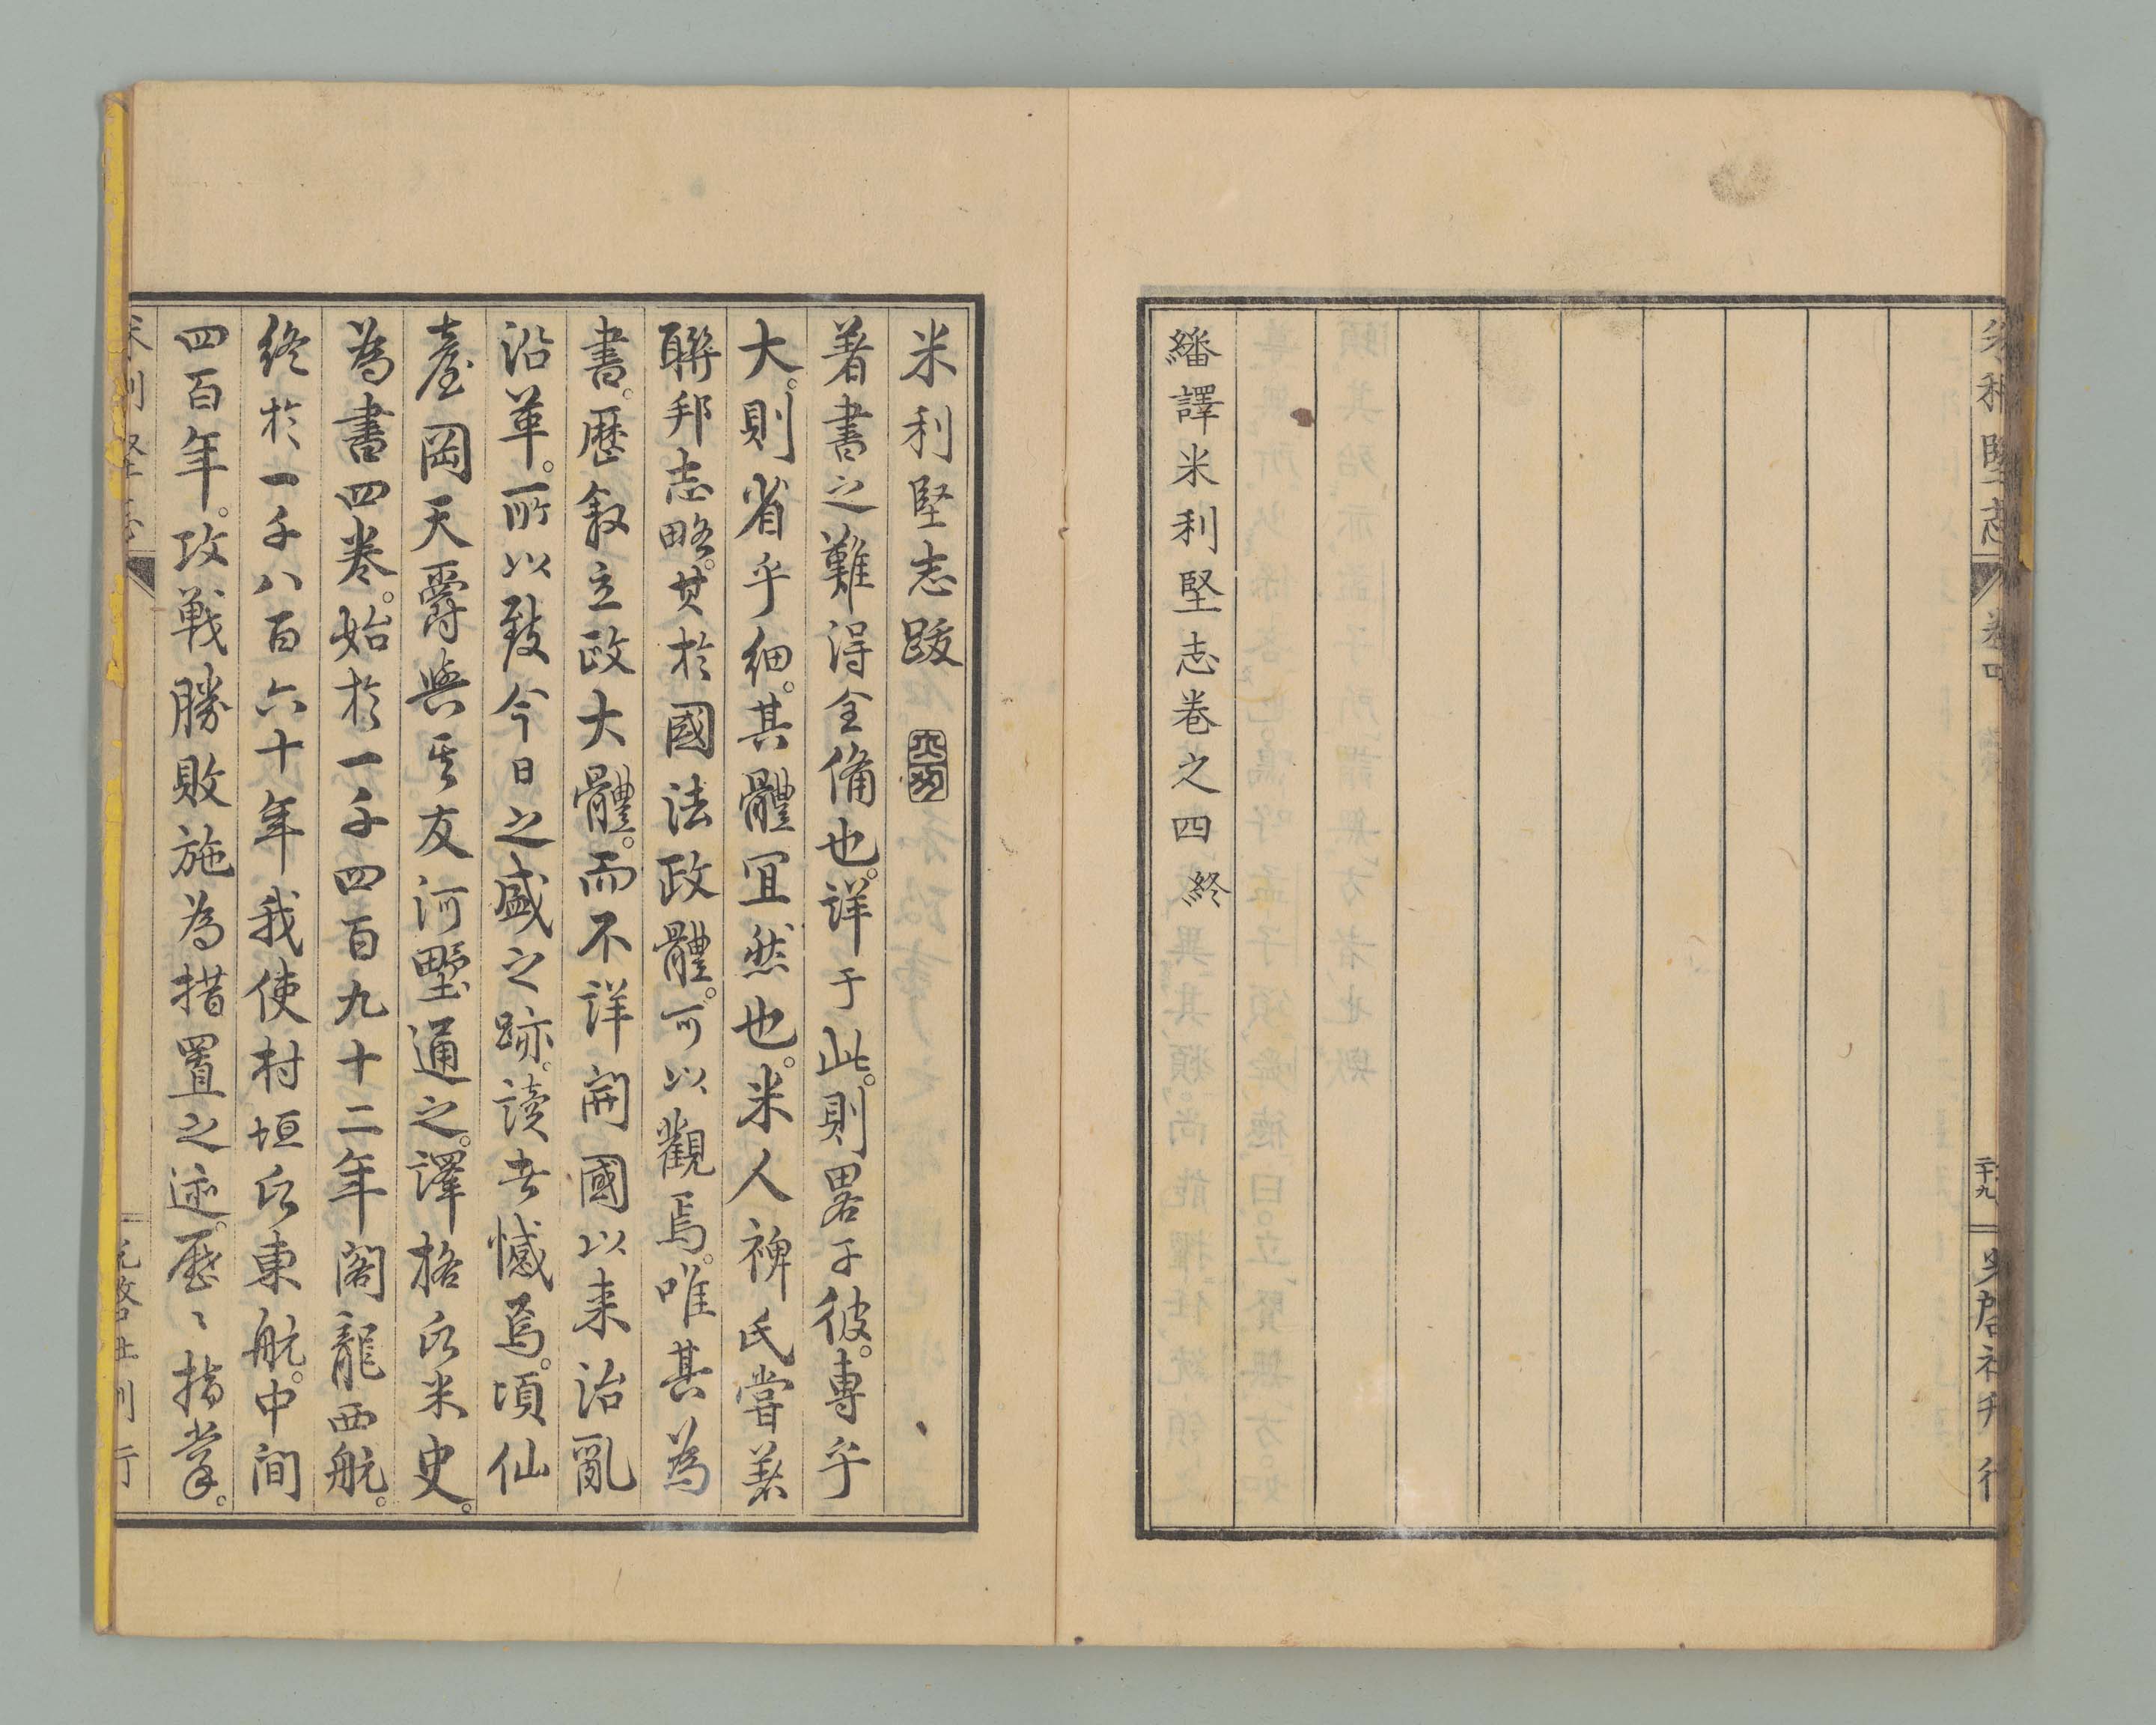 米利堅志
卷四
二十九
光啓社刊行
繙譯米利堅志卷之四 終
米利堅志跋
著書之難得全備也。詳于此。則畧于彼。專乎
大。則省乎細。其體宜然也。米人裨氏嘗著
聯邦志略。其於國法政體。可以觀焉。唯其為
書。歷敘立政大體。而不詳開國以来治亂
沿革。所以致今日之盛之跡。讀者憾焉。頃仙
臺岡天爵與其友河野通之。譯格氏米史。
為書四卷。始於一千四百九十二年閣龍西航。
終於一千八百六十年我使村垣氏東航。中間
四百年。攻戰勝敗施為措置之迹。歷〻指掌。
米利堅志
光啓社刊行